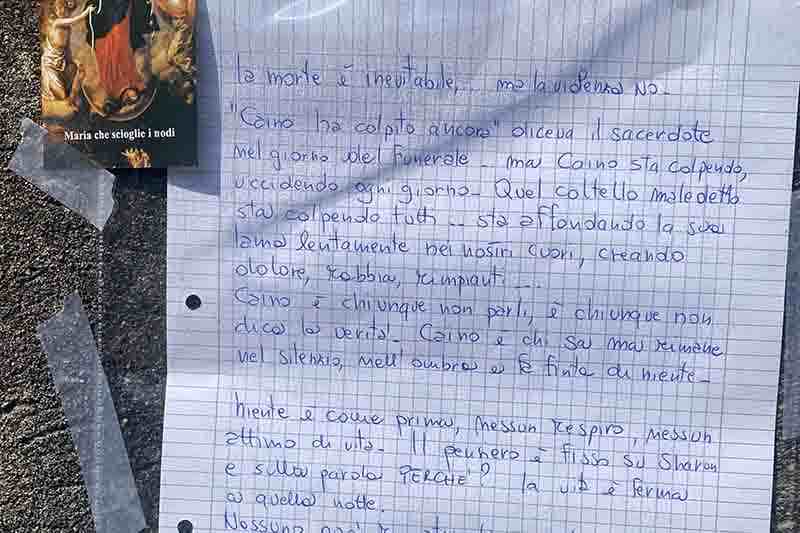 Maria che scioglie i nodi
la morte è inevitabile,.. ma la violenza NO-
"Caino ha colpito ancora" diceva il sacerdote
nel giorno del funerale - ma Caino sta colpendo,
uccidendo ogni giorno - Quel coltello maledetto
sta colpendo tutti .. sta affondando la sua
lama lentamente nei nostri cuori, creando
dolore, rabbia, rimpianti ...
Caino è chiunque non parli, è chiunque non
dica la verità. Caino è chi sa ma rimane
nel silenzio, nell'ombra e fa finta di niente -
niente è come prima, nessun respiro, nessun
attimo di vita. Il pensiero è fisso su Sharon
e sulla parola PERCHÉ? la vita è ferma
a quella notte.
Nessuno